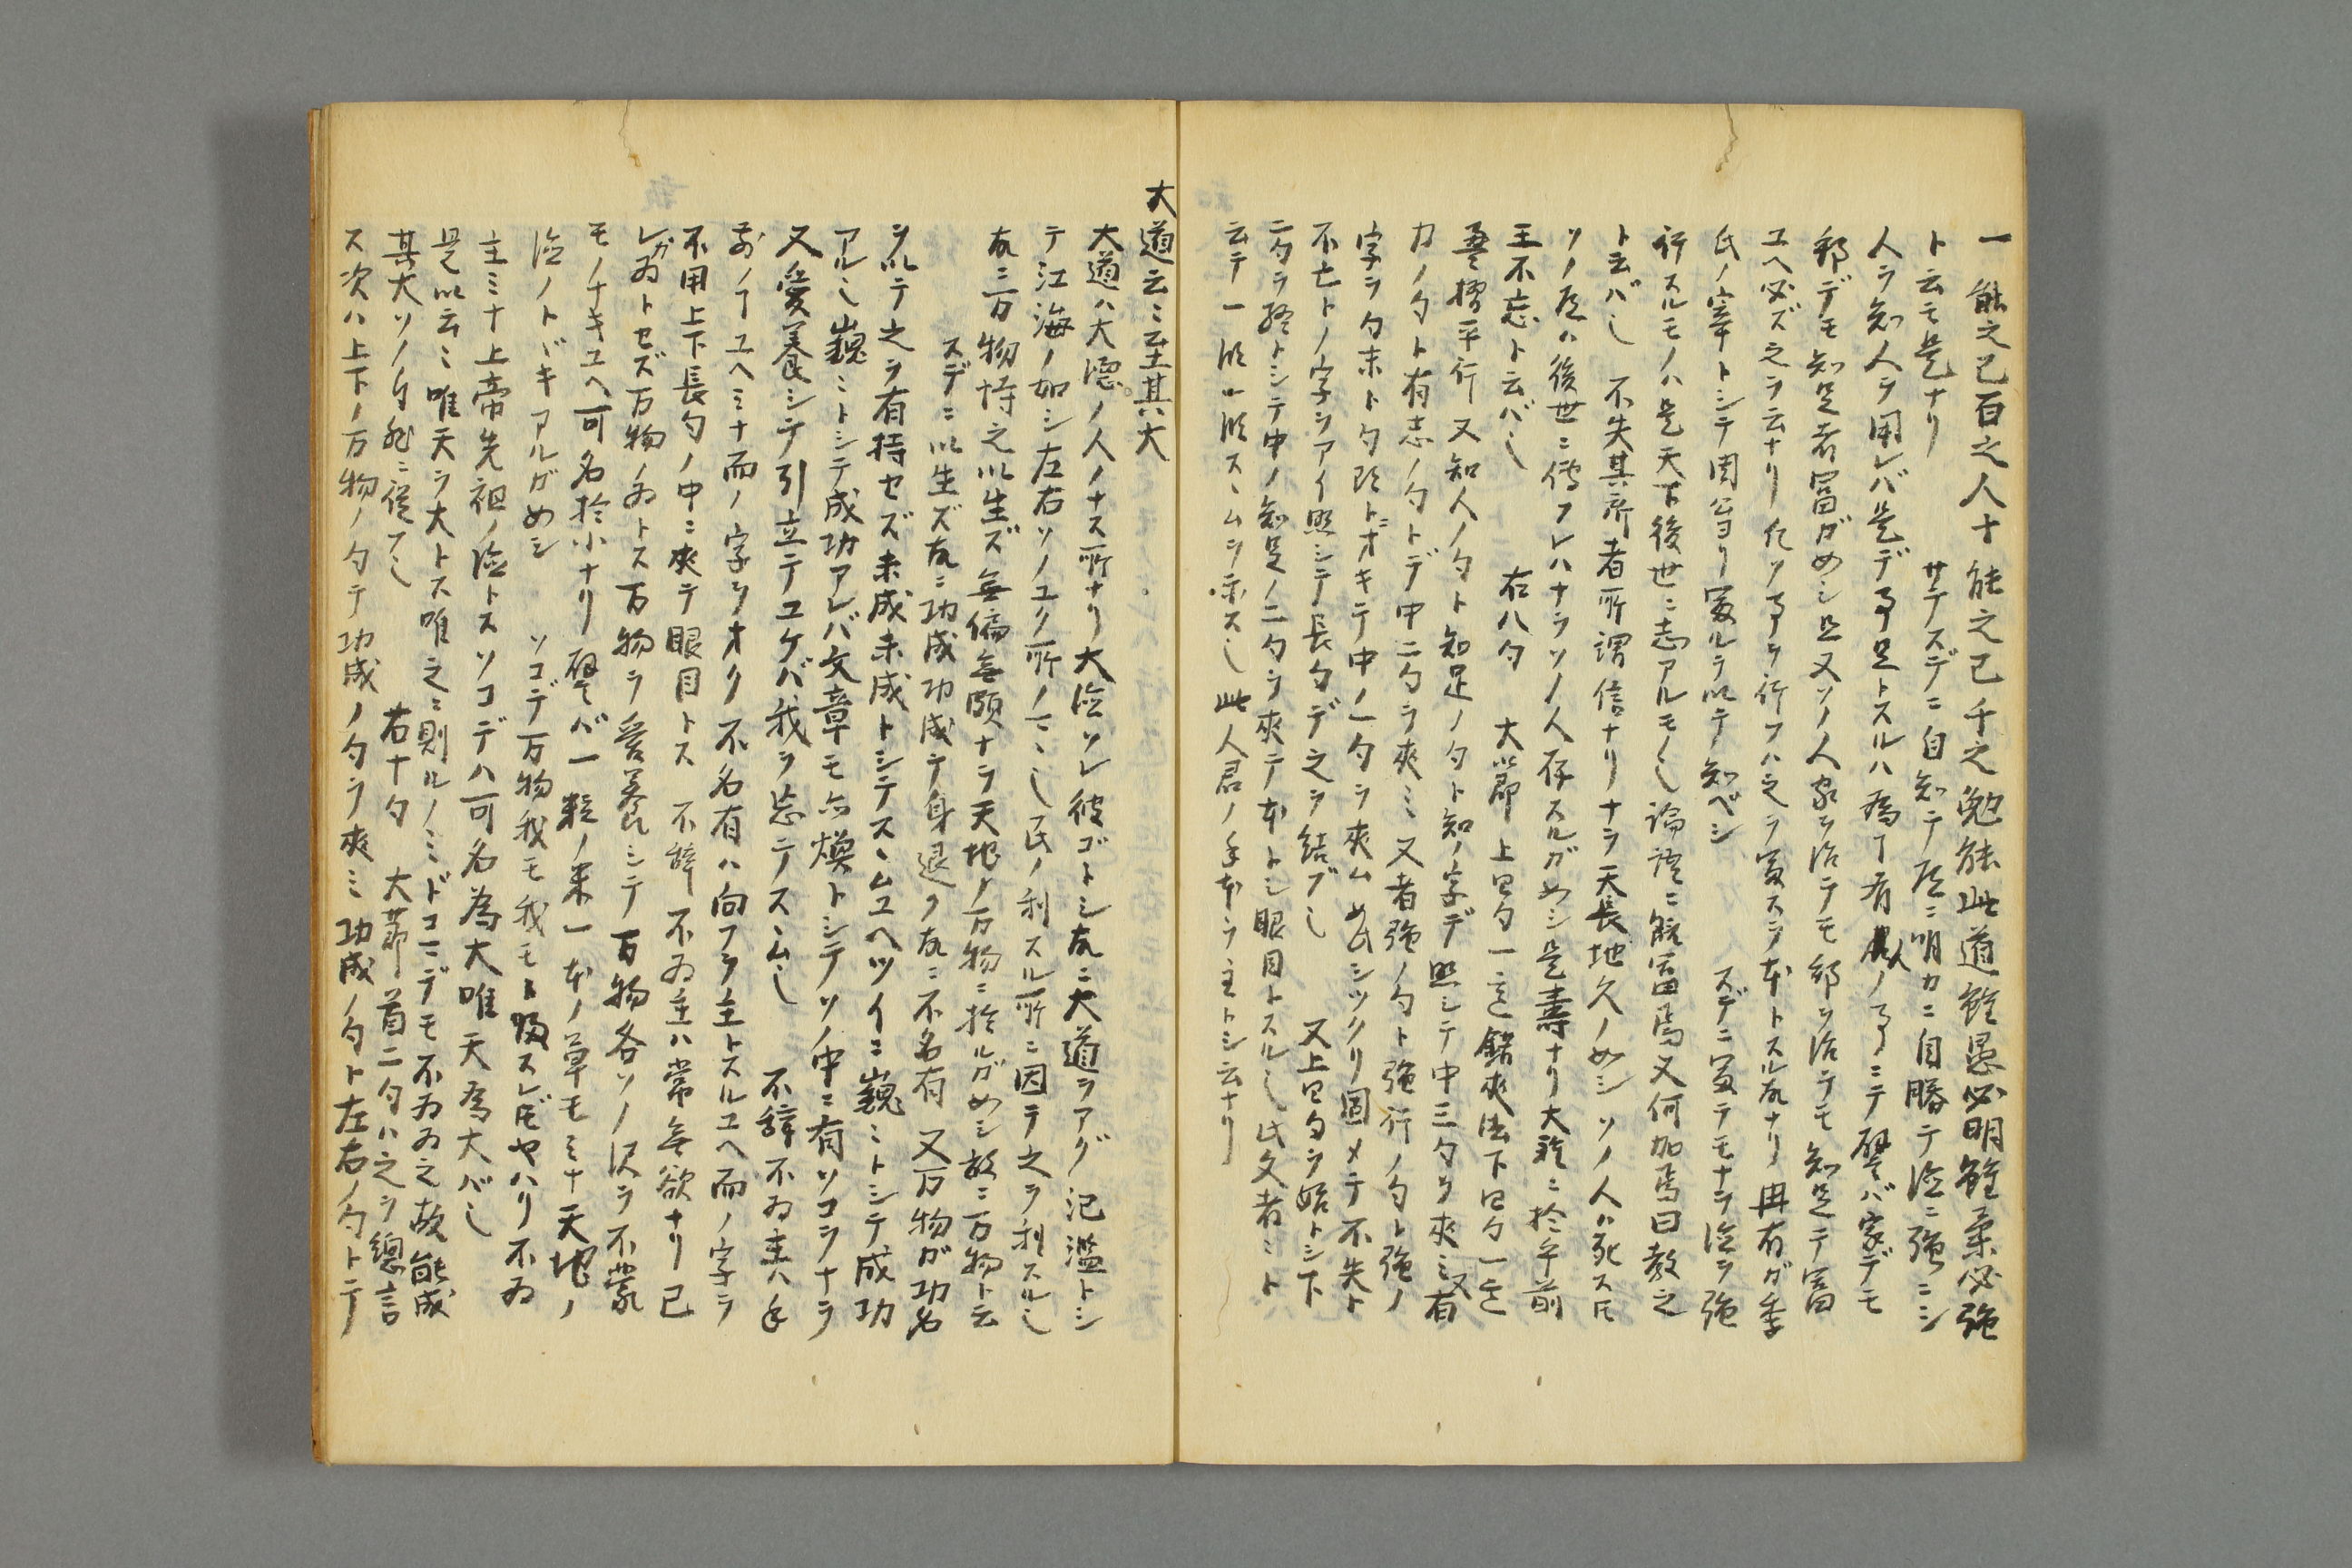 一能之已百之人十能之已千之勉能此道雖愚必明雖柔必強
ト云モ是ナリ　サテスデニ自知テ后ニ明カニ自勝テ后ニ強ニシ
人ヲ知人ヲ用レバ是デ事足トスルハ為下有人ノ事ニテ譬バ家デモ
邦デモ知足者富ガ如シ且又ソノ人家ヲ治テモ邦ヲ治テモ知足テ富
ユヘ必ズ之ヲ云ナリ　事ヲ行フハ之ヲ本トスル故ナリ冉有ガ季
氏ノ宰トシテ周公ヨリ富ルヲ以テ知ベシ　スデニ富テモナヲ　強
行スルモノハ是天下後世ニ志アルモノ也論語ニ既富焉又何加焉曰教之
ト云バ也　不失其所者所謂信ナリナヲ天長地久ノ如シソノ人ハ死ス圧
ソノ　ハ後世ニ傳フレハナヲソノ人存スルガ如シ是壽ナリ大雅ニ於乎前
王不忘ト云バ也　右八句　大節上四句一意　夾法下四句一意
　平行又知人ノ句ト知足ノ句ト知ノ字デ照シテ中三句ヲ夾ミ又有
力ノ句ト有志ノ句トデ中二句ヲ夾ミ又者強ノ句ト強行ノ句ト強ノ
字ヲ句末ト句頭トニオキテ中ノ一句ヲ夾ム如此シツクリ固メテ不失ト
不亡トノ字ヲアイ照シテ長句デ之ヲ結ブ也　又上四句ヲ始トシ下
二句ヲ終トシテ中ノ知足ノ二句ヲ夾テ本トシ眼目トスル也此文者ミト
云テ一　一　スヽムヲ示ス也此人君ノ手本ヲ主トシ云ナリ
大道云ミ至其大
大道ハ大德ノ人ノナス所ナリ大　ソレ彼ゴトシ故ニ大道ヲアグ氾濫トシ
テ江海ノ如シ左右ソノユク所ノマヽ也民ノ利スル所ニ因テ之ヲ利スル也
故ニ万物恃之以生ズ無偏無頗ナヲ天地ノ万物ニ於ルガ如シ故ニ万物ト云
スデニ以生ズ故ニ功成功成テ身退ク故ニ不名有　又万物ガ功名
ヲ以テ之ヲ有持セズ未成未成トシテスヽムユヘツイニ巍ミトシテ成功
アル也巍ミトシテ成功アレバ文章モ亦煥トシテソノ中ニ有ソコヲナヲ
又愛養シテ引立テユケバ我ヲ忘テスヽム也　不辞不為主ハ手
前ノ丁ユヘミナ而ノ字ヲオク不名有ハ向フヲ主トスルユヘ而ノ字ヲ
不用上下長句ノ中ニ夾テ眼目トス　不辞不為主ハ常無欲ナリ已
レガ為トセズ万物ノ為トス万物ヲ愛養シテ万物各ソノ沢ヲ不蒙
モノナキユヘ可名於小ナリ譬バ一粒ノ粟一本ノ草モミナ天地ノ
　ノトドキアルガ如シ　ソコデ万物我モ我モト歸スレ圧ヤハリ不為
主ミナ上帝先祖ノ　トスソコデハ可名為大唯天為大バ也
是以云ミ唯天ヲ大トス唯之ニ則ルノミドコマデモ不為為之故能成
其大ソノ自然ニ從フ也　右十句　大節首二句ハ之ヲ總言
ス次ハ上下ノ万物ノ句テ功成ノ句ヲ夾ミ功成ノ句ト左右ノ句トテ